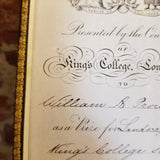 Presented by the Cou
OF
King's College, Lon
TO
William B.
as a Prize for
King's College